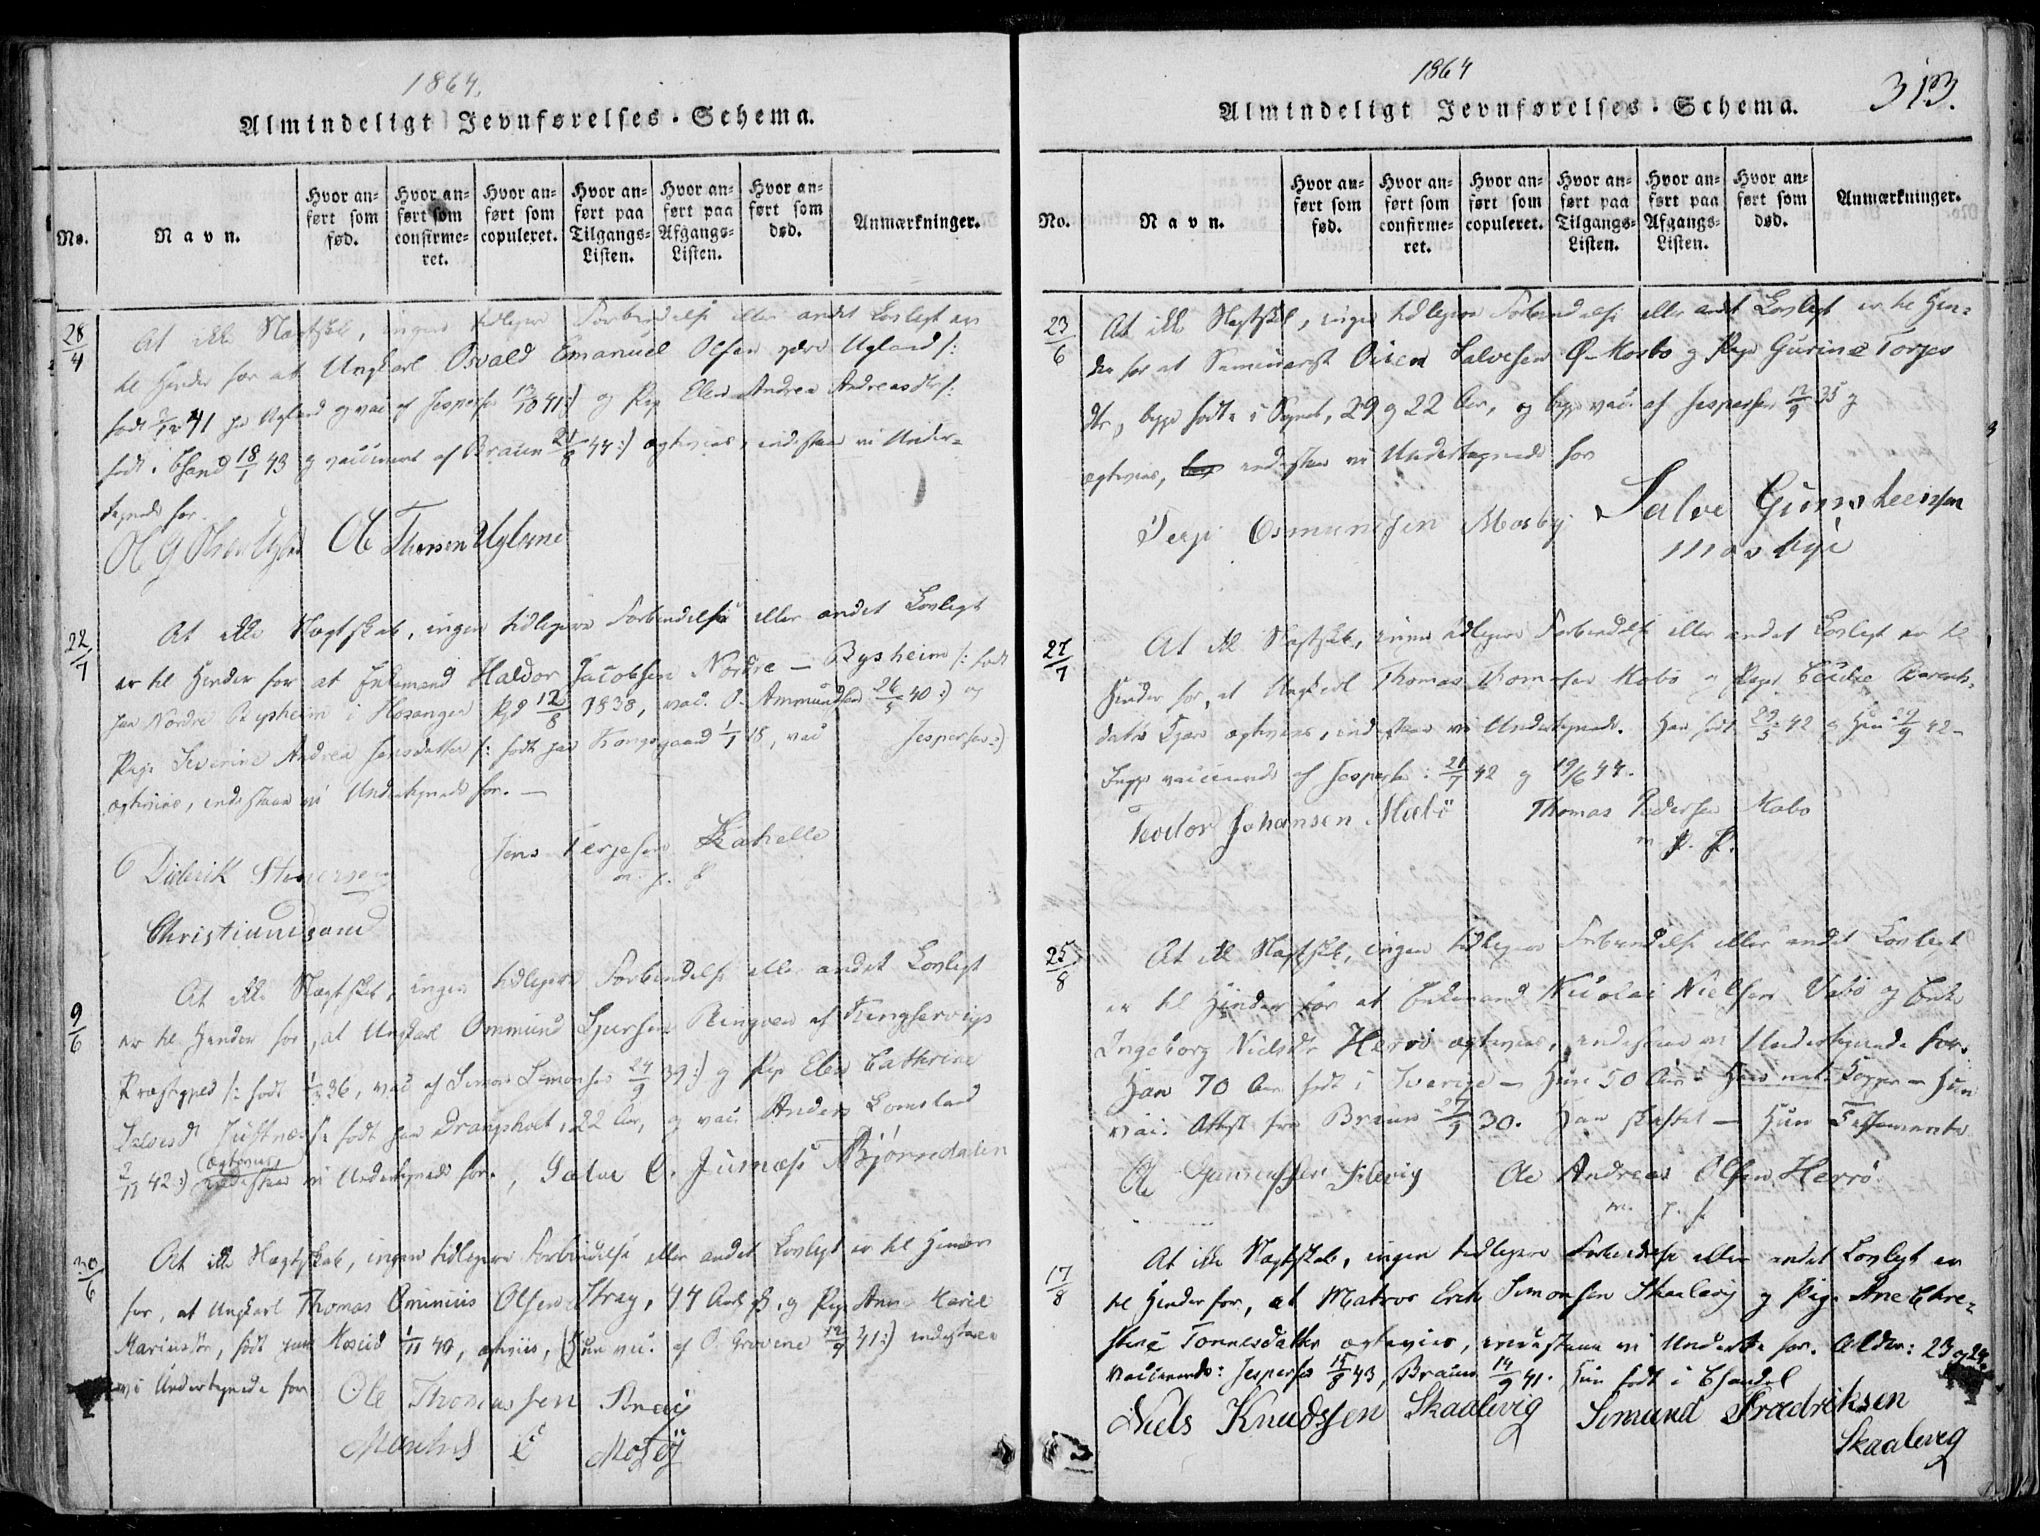 1864.
Almindeligt Jevnførelses-Schema.
No.
Navn.
Hvor anført som fød.
Hvor anført som confirmeret.
Hvor anført som copuleret.
Hvor anført paa Tilgangs-Listen.
Hvor anført paa Afgangs-Listen.
Hvor anført som død.
Anmærkninger.
28/4
At ikke Slægtskab, ingen tidligere Forbindelse eller andet Lovligt er
til Hinder for at Ungkarl Osvald Emanuel Olsen Ugland /:
født 41 paa Ugland og vac. af Jespersen 41:/ og Pige Ellen Andrea Andreasdtr /:
født i Chsand 18/1 43 og vaccineret af Braun 21/8 44:/ ægtevies, indestaae vi Under-
tegnede for.
Ole Thorsen Ugland
22/7
At ikke Slægtskab, ingen tidligere Forbindelse eller andet Lovligt
er til Hinder for at Enkemand Haldor Jacobsen Nordre - Bysheim /: født
paa Nordre Bysheim i Hosanger Pgd 12/8 1838, vac. O. Ammundsen 26/5 40:/ og
Pige Severine Andrea Jensdatter /: født paa Kongsgaard 1/1 18, vac. Jespersen:/
ægtevies, indestaae vi Undertegnede for. -
Diderik
Jens Terjesen
m. p. f.
Christiansand
9/6
At ikke Slægtskab, ingen tidligere Forbindelse eller andet Lovligt
er til Hinder for, at Ungkarl Ommund Sjursen Ringøen af Kingservigs
Præstegjeld /: født 36, vac. af Simon Simonsen 24/9 39:/ og Pige Elen Cathrine
Salvesdtr Justnæs /: født paa Drangsholt, 22 Aar, og vac. Anders Lomeland
2/11 42:/ ægtevies, indestaae vi Undertegnede for.
30/6
At ikke Slægtskab, ingen tidligere Forbindelse eller andet Lovligt er til Hinder
for, at Ungkarl Thomas Ominius Olsen Stray, 44 Aar og Pige Anne Marie
Mariusdtr, født paa Mosid 1/11 40, ægtevies, (Hun vac. af O. Grovene 12/9 41:/) indestaae
vi Undertegnede for
Ole Thomassen Stray
1864
313.
Almindeligt Jevnførelses-Schema.
No.
Navn.
Hvor anført som fød.
Hvor anført som confirmeret.
Hvor anført som copuleret.
Hvor anført paa Tilgangs-Listen.
Hvor anført paa Afgangs-Listen.
Hvor anført som død.
Anmærkninger.
23/6
At ikke Slægtskab, ingen tidligere Forbindelse eller andet Lovligt er til Hin-
der for at Seminarist Salvesen Ø. Mosbø og Pige Gurine Torjes
dtr, begge fødte i Sognet, 29 og 22 Aar, og begge vac. af Jespersen 12/9 35 og
ægtevies, indestaae vi Undertegnede for
Terje Osmundsen Mosby
Salve Gunsteensen
Mosbye
27/7
At ikke Slægtskab, ingen tidligere Forbindelse eller andet Lovligt er til
Hinder for, at Ungkarl Thomas Thomasen Mæbø og Pige
datter ægtevies, indestaae vi Undertegnede. Han født 29/5 42 og Hun 42 -
begge vaccinerede af Jespersen: 42 og 19/6 44.
Teodor Johansen Mæbö
Thomas Pedersen Mæbø
m. p. p.
25/8
At ikke Slægtskab, ingen tidligere Forbindelse eller andet Lovligt
er til Hinder for at Enkemand Nicolai Nielsen og Enke
Ingeborg Nielsdtr Herrö ægtevies, indestaae vi Undertegnede for.
Han 70 Aar født i Sverige - Hun 50 Aar - Han nat. Kopper - Hun
vac. Attest fra Braun 27/9 30. Han skiftet - Hun Testamente
Ole Andreas Olsen Herrö.
m. p. f.
17/8
At ikke Slægtskab, ingen tidligere Forbindelse eller andet Lovligt er
til Hinder for, at Matros Erik Simonsen Skaalevig og Pige Ane Chri-
stine Tønnesdatter ægtevies, indestaae vi Undertte for. Alder: 23 og 24.
vaccinerede: Jespersen 15/8 43, Braun 14/9 41. Hun født i Chsand
Niels Knudssen Skaalevig
Simund Fredriksen
Skaalevig